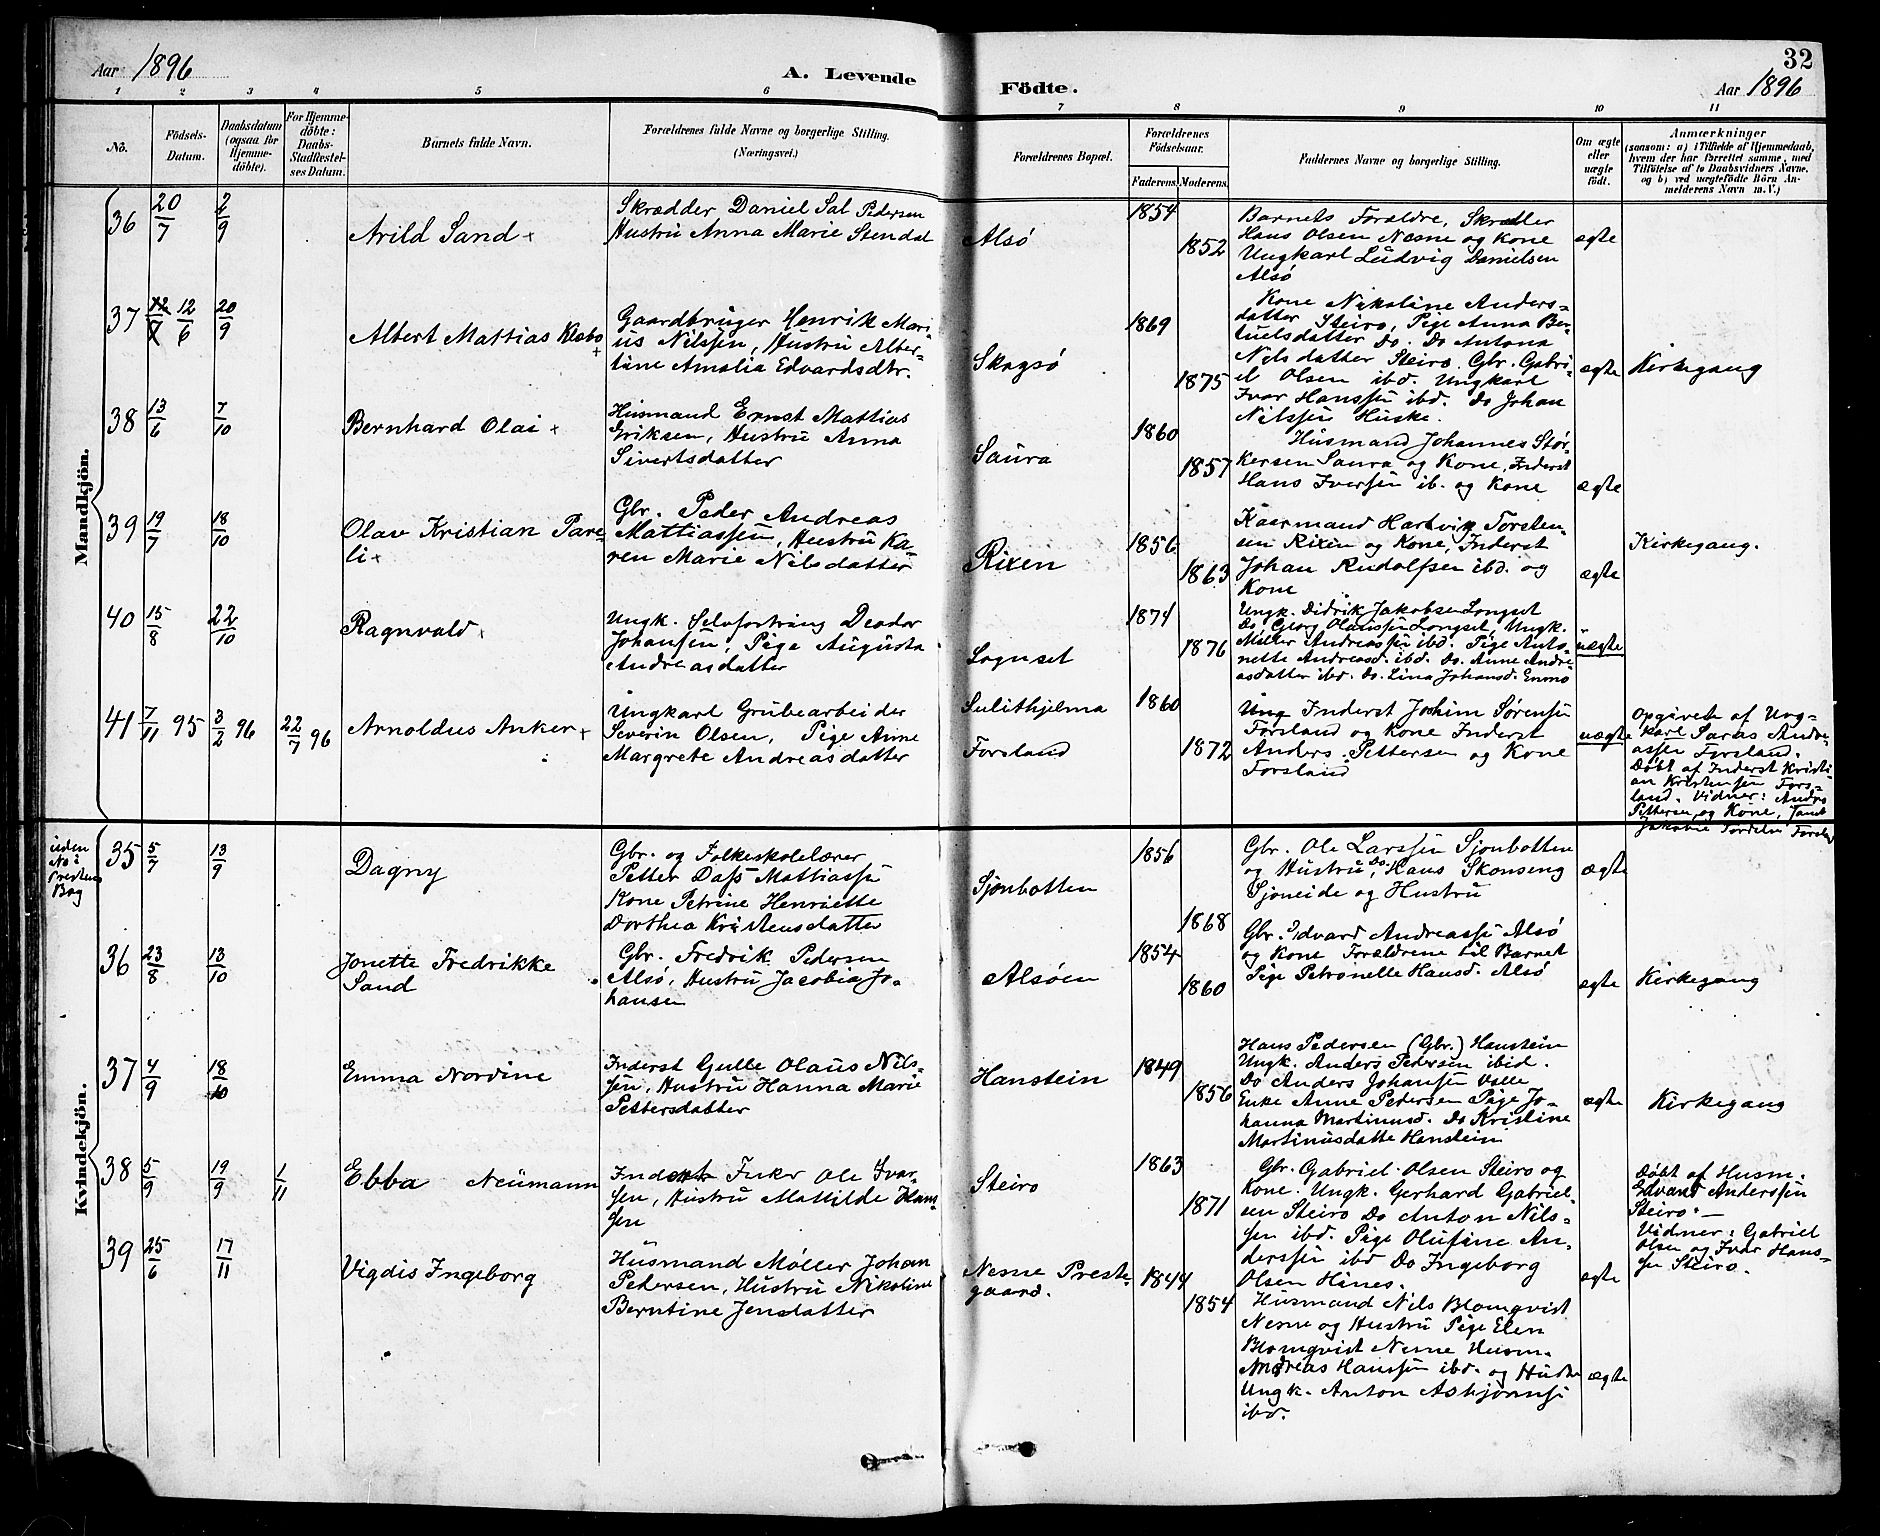 Aar 1896
A. Levende
Födte.
32
Aar 1896
1 2 3 4 5 6 7 8 9 10 11
No.
Födsels-Datum.
Daabsdatum (ogsaa for Hjemmedöbte).
For Hjemmedöbte: Daabs-Stadfæstelses Datum.
Barnets fulde Navn.
Forældrenes fulde Navne og borgerlige Stilling. (Næringsvei.)
Forældrenes Bopæl.
Forældrenes Födselsaar.
Faderens. Moderens.
Faddernes Navne og borgerlige Stilling.
Om ægte eller uægte födt.
Anmærkninger
(saasom: a) i Tilfælde af Hjemmedaab,
hvem der har forrettet samme, med
Tilföielse af to Daabsvidners Navne.
og b) ved uægtefödte Börn An-
melderens Navn m. V.)
Mandkjön.
36 20/7 2/9
Arild Sand
Skrædder Daniel Sal Pedersen
Hustru Anna Marie Stendal
Alsö
1854
1852
Barnets Forældre, Skrædder
Hans Olsen Nesne og Kone
Ungkarl Ludvig Danielsen
Alsö
ægte
37 12/6 20/9
Albert Mattias Klæbo
Gaardbruger Henrik Mari-
us Nilssen, Hustru Alber-
tine Amalia Edvardsdtr.
Skogsö
1869
1875
Kone Nikoline Anders-
datter Steiro, Pige Anna Be-
tuelsdatter Do. Do Antona
Nilsdatter Steiro. Gbr. Gabri-
el Olsen ibd. Ungkarl
Ivar Hanssen ibd. Do Johan
Nilssen Huske.
ægte
Kirkegang
38 13/6 7/10
Bernhard Olai
Husmand Ernst Mattias
Eriksen, Hustru Anna
Sivertsdatter
Saura
1860
1857
Husmand Johannes Stør-
kersen Saura og Kone, Inderst
Hans Iversen ib. og Kone
ægte
39 19/7 18/10
Olav Kristian Pare-
li
Gbr. Peder Andreas
Mattiassen, Hustru Ka-
ren Marie Nilsdatter
Rixen
1856
1863
Kaarmand Hartvig Torsten-
sen Rixen og Kone, Inderst
Johan Rudolfsen ibd. og
Kone
ægte
Kirkegang.
40 15/8 22/10
Ragnvald
Ungk. Selvfortring Deodor
Johansen, Pige Augusta
Andreasdatter
Lognset
1874
1876
Ungk. Didrik Jakobsen Longset
Do. Georg Olaussen Longset, Ungk.
Møller Andreassen ibd. Pige Anto-
nette Andreasd. ibd. Do. Anne Andre-
asdatter ibd. Do. Lina Johansd. Enmo
uægte
41 7/11 95 3/2 96 22/7 96
Arnoldus Anker
Ungkarl Grubearbeider
Severin Olsen, Pige Anne
Margrete Andreasdatter
Sulithjelma
Forsland
1860
1872
Ung Inderst Jochim Sørensen
Forsland og Kone Inderst
Anders Pettersen og Kone
Forsland
uægte
Opgivet af Ung-
karl Saras Andre-
assen Forsland.
Døbt af Inderst Kristi-
an Kristensen Fors-
land. Vidner: Andrs
Pettersen og Kone,
Jakobie Forsland
Kvindekjön.
uden
No i
Prestens
Bog
35 5/7 13/9
Dagny
Gbr. og Folkeskolelærer
Petter Dass Mattiassen
Kone Petrine Henriette
Dorthea Kristensdatter
Sjonbotten
1856
1868
Gbr. Ole Larssen Sjonbotten
og Hustru, Do. Hans Skonseng
Sjoneide og Hustru
ægte
36 23/8 13/10
Jonette Fredrikke
Sand
Gbr. Fredrik Pedersen
Alsö, Hustru Jacobia Jo-
hansen
Alsöen
1854
1860
Gbr. Edvard Andreassen Alsö
og Kone Forældrene til Barnet
Pige Petronelle Hansd. Alsö
ægte
Kirkegang
37 4/9 18/10
Emma Nordine
Inderst Gulle Olaus Nils-
sen, Hustru Hanna Marie
Pettersdatter
Hanstein
1849
1856
Hans Pedersen (Gbr.) Hanstein
Ungk. Anders Pedersen ibid.
Do Anders Johansen Valle
Enke Anne Pedersen Pige Jo-
hanna Martinusd. Do Kristine
Martinusdatte Hanstein
ægte
Kirkegang
38 5/9 19/9 1/11
Ebba Neümann
Inderst Ole Ivar-
sen, Hustru Mathilde Han-
sen
Steiro
1863
1871
Gbr. Gabriel Olsen Steiro og
Kone. Ungk. Gerhard Gabriel-
sen Steiro Do Anton Nils-
sen ibd. Pige Olufine An-
derssen ibd Do Ingeborg
Olsen Hines.
ægte
Døbt af Husm.
Edvard Anderssen
Steiro. —
Vidner: Gabriel
Olsen og Ivar Hans-
sen Steiro.
39 25/6 17/11
Vigdis Ingeborg
Husmand Møller Johan
Pedersen, Hustru Nikoline
Berntine Jensdatter
Nesne Preste-
gaard.
1844
1854
Husmand Nils Blomqvist
Nesne og Hustru Pige Elen
Blomqvist Nesne Husm.
Andreas Hanssen ibd. og Hustru
Ungk. Anton Asbjørnsen
ibd.
ægte